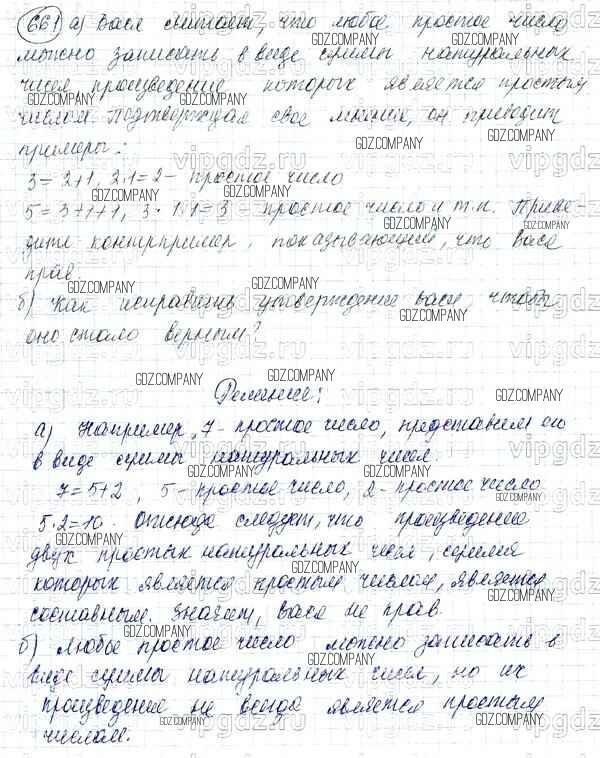 661 а) Вася считает, что любое простое число
можно записать в виде суммы натуральных
чисел произведение которых является простым
числом. Подтверждая свое мнение, он приводит
примеры:
3=2+1, 2·1=2- простое число
5=3+1+1, 3·1·1=3 простое число и т.п. Приве-
дите контрпример, показывающий, что Вася
прав.
б) Как исправить утверждение Васи, чтобы
оно стало верным?
Решение:
а) Например, 7- простое число, представим его
в виде суммы натуральных чисел.
7=5+2, 5- простое число, 2- простое число
5·2=10. Отсюда следует, что произведение
двух простых натуральных чисел, сумма
которых является простым числом, является
составным. Значит, Вася не прав.
б) Любое простое число можно записать в
виде суммы натуральных чисел, но их
произведение не всегда является простым
числом.
GDZ.COMPANY
vipgdz.ru